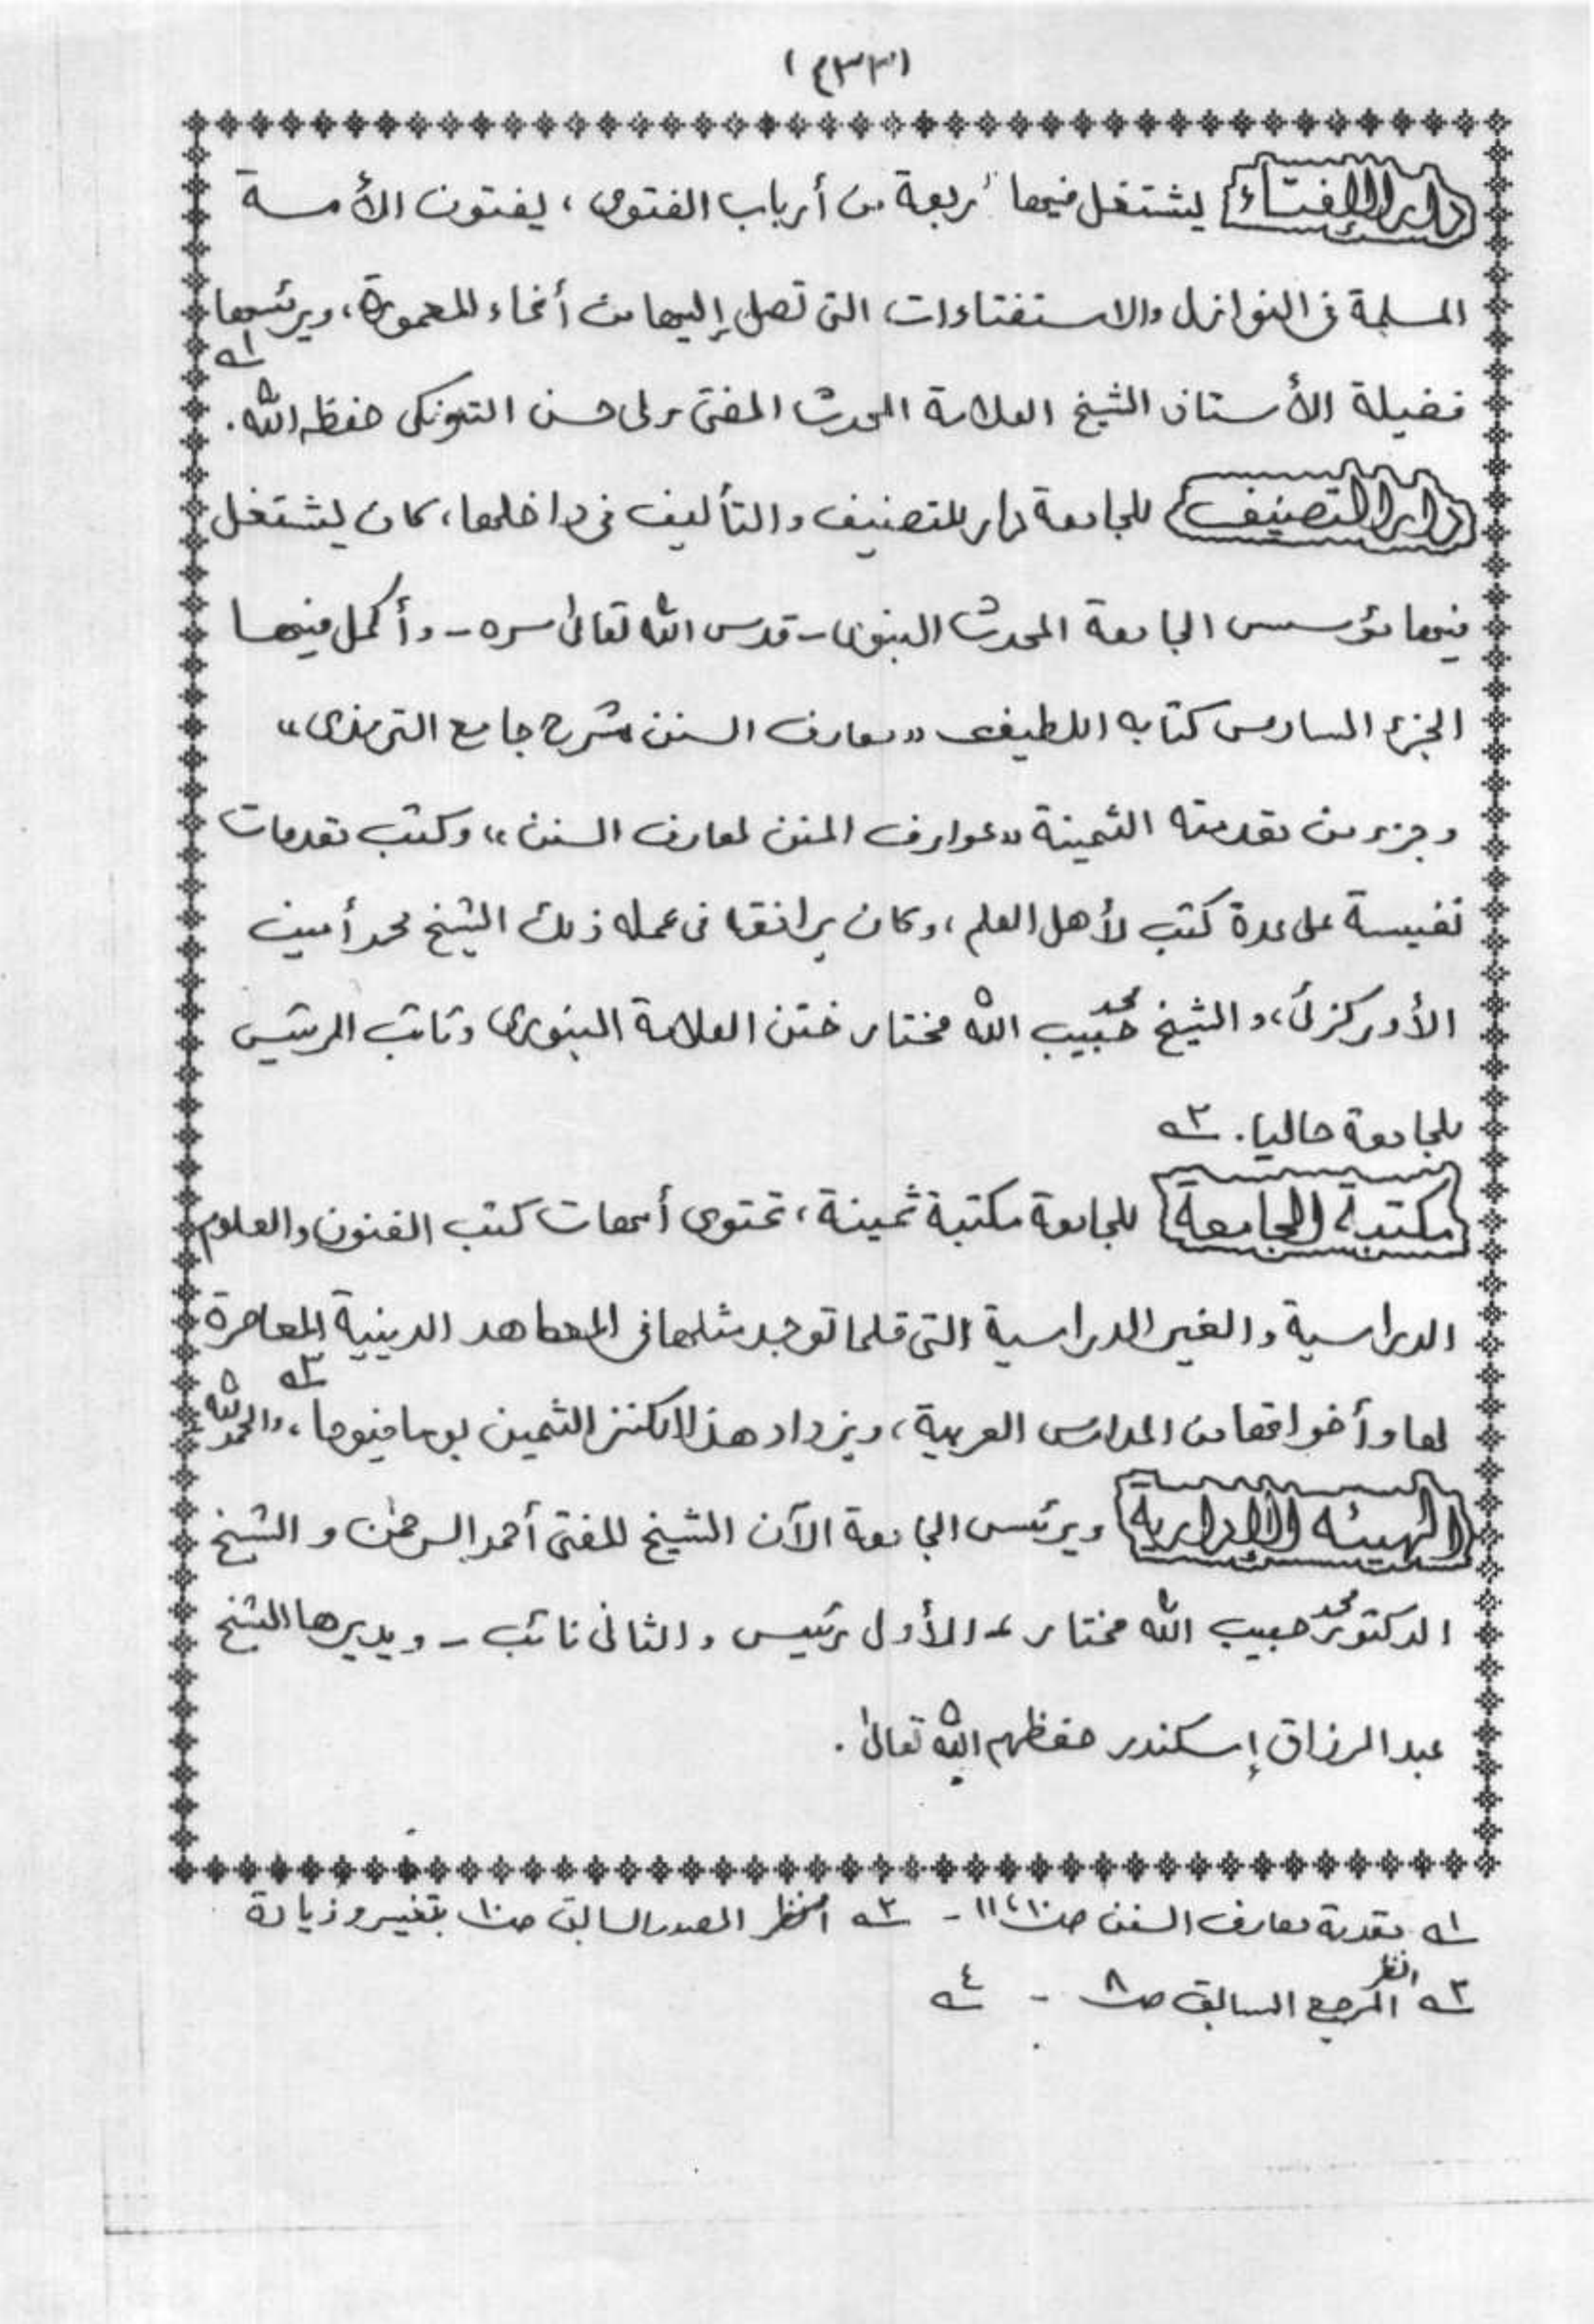 (٤٣٣)
دار الإفتاء يشتغل فيها أربعة من أرباب الفتوى ، يفتون الأمة
المسلمة فى النوازل والاستفتاءات التى تصل إليها من أنحاء المعمورة، ويرئسها
فضيلة الأستاذ الشيخ العلامة المحدث المفتى ولى حسن التونكى حفظه الله. ١ه
دار التصنيف للجامعة دار للتصنيف والتأليف فى داخلها، كان يشتغل
فيها مؤسس الجامعة المحدث البنورى - قدس الله تعالى سره - وأكمل فيها
الجزء السادس كتابه اللطيف «معارف السنن شرح جامع الترمذى»
وجزء من مقدمته الثمينة «عوارف المنن لمعارف السنن» وكتب مقدمات
نفيسة على عدة كتب لأهل العلم، وكان يرافقا فى عمله ذلك الشيخ محمد أمين
الأوركزئى، والشيخ محمد حبيب الله مختار ختن العلامة البنورى ونائب الرئيس
للجامعة حاليا. ٢ه
مكتبة الجامعة للجامعة مكتبة ثمينة، تحتوى أمهات كتب الفنون والعلوم
الدراسية والغير الدراسية التى قلما توجد مثلها فى المعاهد الدينية المعاصرة
لها وأخواتها من المدارس العربية، ويزداد هذا الكنز الثمين يوما فيوما، والحمد لله ٣ه
الهيئه الإدارية ويرئس الجامعة الآن الشيخ المفتى أحمد الرحمٰن و الشيخ
الدكتور محمد حبيب الله مختار - الأول رئيس والثانى نائب - ويديرها الشيخ
عبد الرزاق إسكندر حفظهم الله تعالى.
١ه مقدمة معارف السنن ص ١٠، ١١ - ٢ه انظر المصدر السابق ص ١٠ بتغيير وزيادة
٣ه انظر المرجع السابق ص ٨ - ٤ه